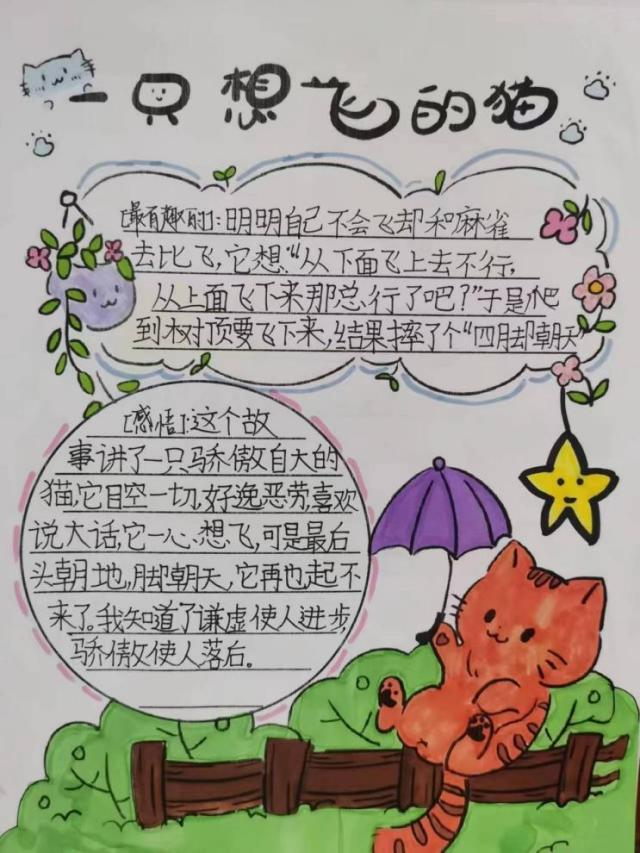 一只想飞的猫
[最有趣的]:明明自己不会飞却和麻雀
去比飞,它想:“从下面飞上去不行,
从上面飞下来那总行了吧?”于是爬
到树顶要飞下来,结果摔了个“四脚朝天”
[感悟]:这个故
事讲了一只骄傲自大的
猫,它目空一切,好逸恶劳,喜欢
说大话,它一心想飞,可是最后
头朝地,脚朝天,它再也起不
来了。我知道了谦虚使人进步,
骄傲使人落后。